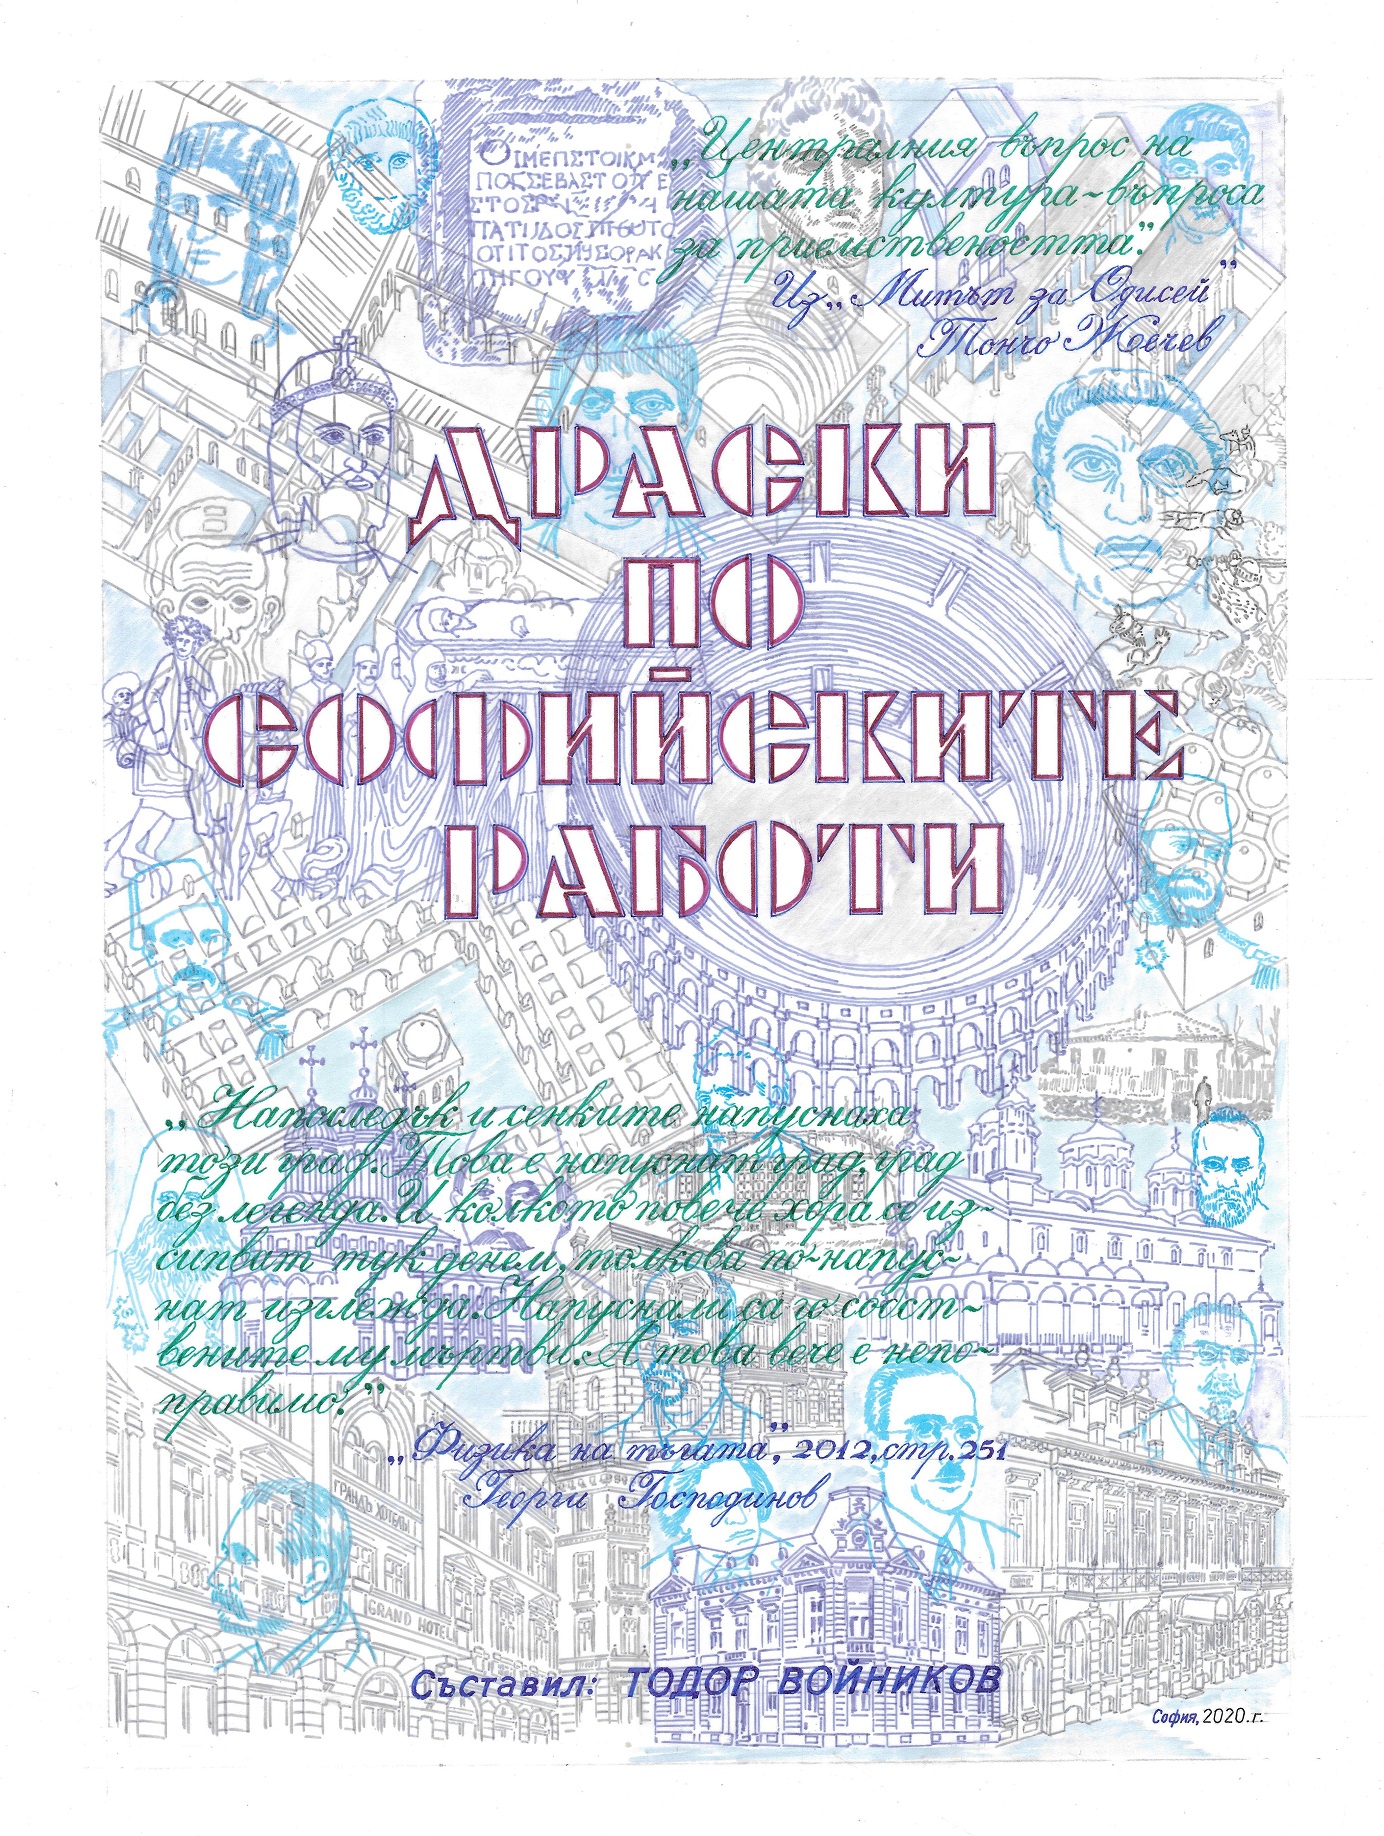 „Централния въпрос на
нашата култура~въпроса
за приемствеността."
Из „Митът за Одисей"
Тончо Жечев
ДРАСКИ
ПО
СОФИЙСКИТЕ
РАБОТИ
„Напоследък и сенките напуснаха
този град. Това е напуснат град, град
без легенда. И колкото повече хора се из~
сипват тук денем, толкова по~напус~
нат изглежда. Напуснали са го собст~
вените му мъртви. А това вече е непо~
правимо."
„Физика на тъгата", 2012, стр. 251
Георги Господинов
ГРАНДЪ ХОТЕЛЪ
GRAND HOTEL
Съставил: ТОДОР ВОЙНИКОВ
София, 2020. г.